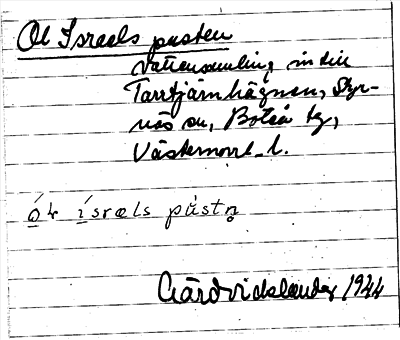 Ol Israels pusten
Vattensamling in till
Tarrtjärnhägnan, Styr-
näs sn, Boteå tg,
Västernorrl. l.
ó̱ɫ í̱sraels pústn̥
Gärdvidslandej 1944